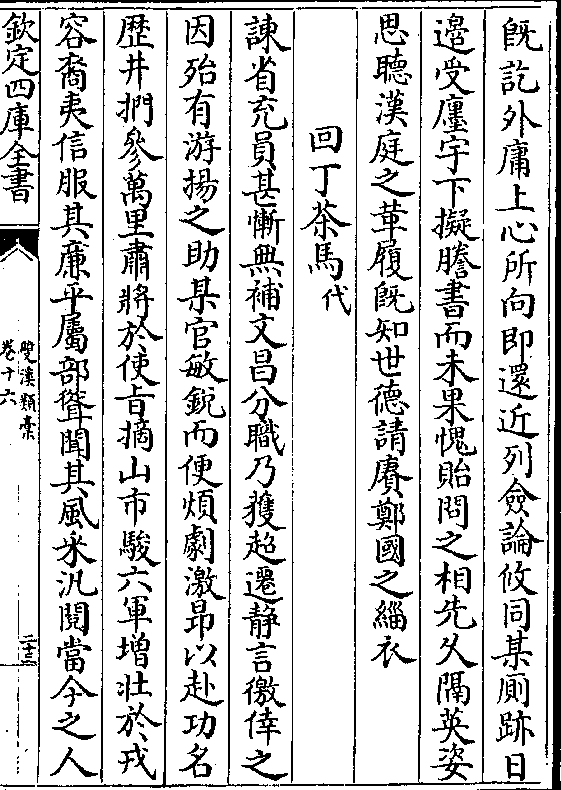 旣訖外庸上心所向即還近列僉論攸同某厠跡日
邉受廛宇下擬謄書而未果愧貽問之相先久隔英姿
思聽漢庭之革履旣知世德請賡鄭國之緇衣
回丁茶馬代
諫省充員甚慚無補文昌分職乃獲超遷静言徼倖之
因殆有游揚之助某官敏銳而便煩劇激昂以赴功名
歴井捫參萬里肅將於使㫖摘山市駿六軍增壯於戎
容裔夷信服其亷平屬部聳聞其風采汎閱當今之人
欽定四庫全書
雙溪類稾
卷十六
二十三